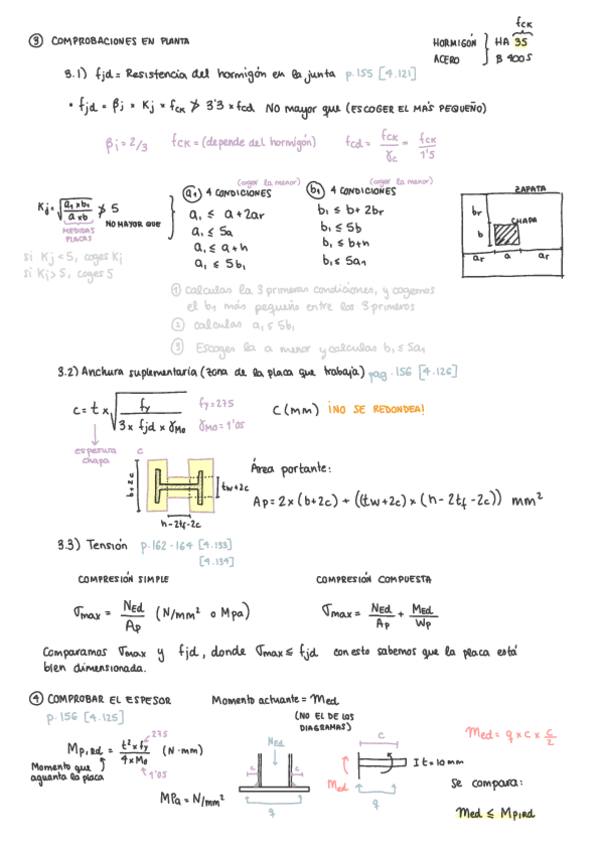 ③ COMPROBACIONES EN PLANTA
fck
HORMIGÓN } HA 35
ACERO } B 400 S
3.1) fjd = Resistencia del hormigón en la junta p.155 [4.121]
• fjd = βj × Kj × fck ≯ 3'3 × fcd NO mayor que (ESCOGER EL MÁS PEQUEÑO)
βj = 2/3 fck = (depende del hormigón) fcd = fck/γc = fck/1'5
Kj = √(a1 × b1 / a × b) ≯ 5
NO MAYOR QUE
MEDIDAS PLACAS
si Kj < 5, coges Kj
si Kj > 5, coges 5
(coger la menor)
a1 4 CONDICIONES
a1 ≤ a + 2ar
a1 ≤ 5a
a1 ≤ a + h
a1 ≤ 5b1
(coger la menor)
b1 4 CONDICIONES
b1 ≤ b + 2br
b1 ≤ 5b
b1 ≤ b + h
b1 ≤ 5a1
ZAPATA
br
CHAPA
b
ar a ar
① calculas la 3 primeras condiciones, y cogemos
el b1 más pequeño entre los 3 primeros
② calculas a1 ≤ 5b1
③ Escoges la a menor y calculas b1 ≤ 5a1
3.2) Anchura suplementaria (zona de la placa que trabaja) pag.156 [4.126]
c = t × √(fy / 3 × fjd × γM0)
fy = 275
γM0 = 1'05
C (mm) ¡NO SE REDONDEA!
espesura chapa
c
b+2c
tw+2c
h-2tf-2c
Área portante:
Ap = 2 × (b+2c) + ((tw+2c) × (h-2tf-2c)) mm²
3.3) Tensión p.162-164 [4.133]
[4.134]
COMPRESIÓN SIMPLE
COMPRESIÓN COMPUESTA
σmax = NEd/Ap (N/mm² o Mpa)
σmax = NEd/Ap + MEd/Wp
Comparamos σmax y fjd, donde σmax ≤ fjd con esto sabemos que la placa está
bien dimensionada.
④ COMPROBAR EL ESPESOR
Momento actuante = Med
p.156 [4.125]
(NO EL DE LOS DIAGRAMAS)
Mp,rd = t² × fy / 4 × M0 (N·mm)
275
1'05
Momento que aguanta la placa
MPa = N/mm²
NEd
c c
q
c
Med
I t = 10 mm
q
Med = q × c × c/2
Se compara:
Med ≤ Mp,rd